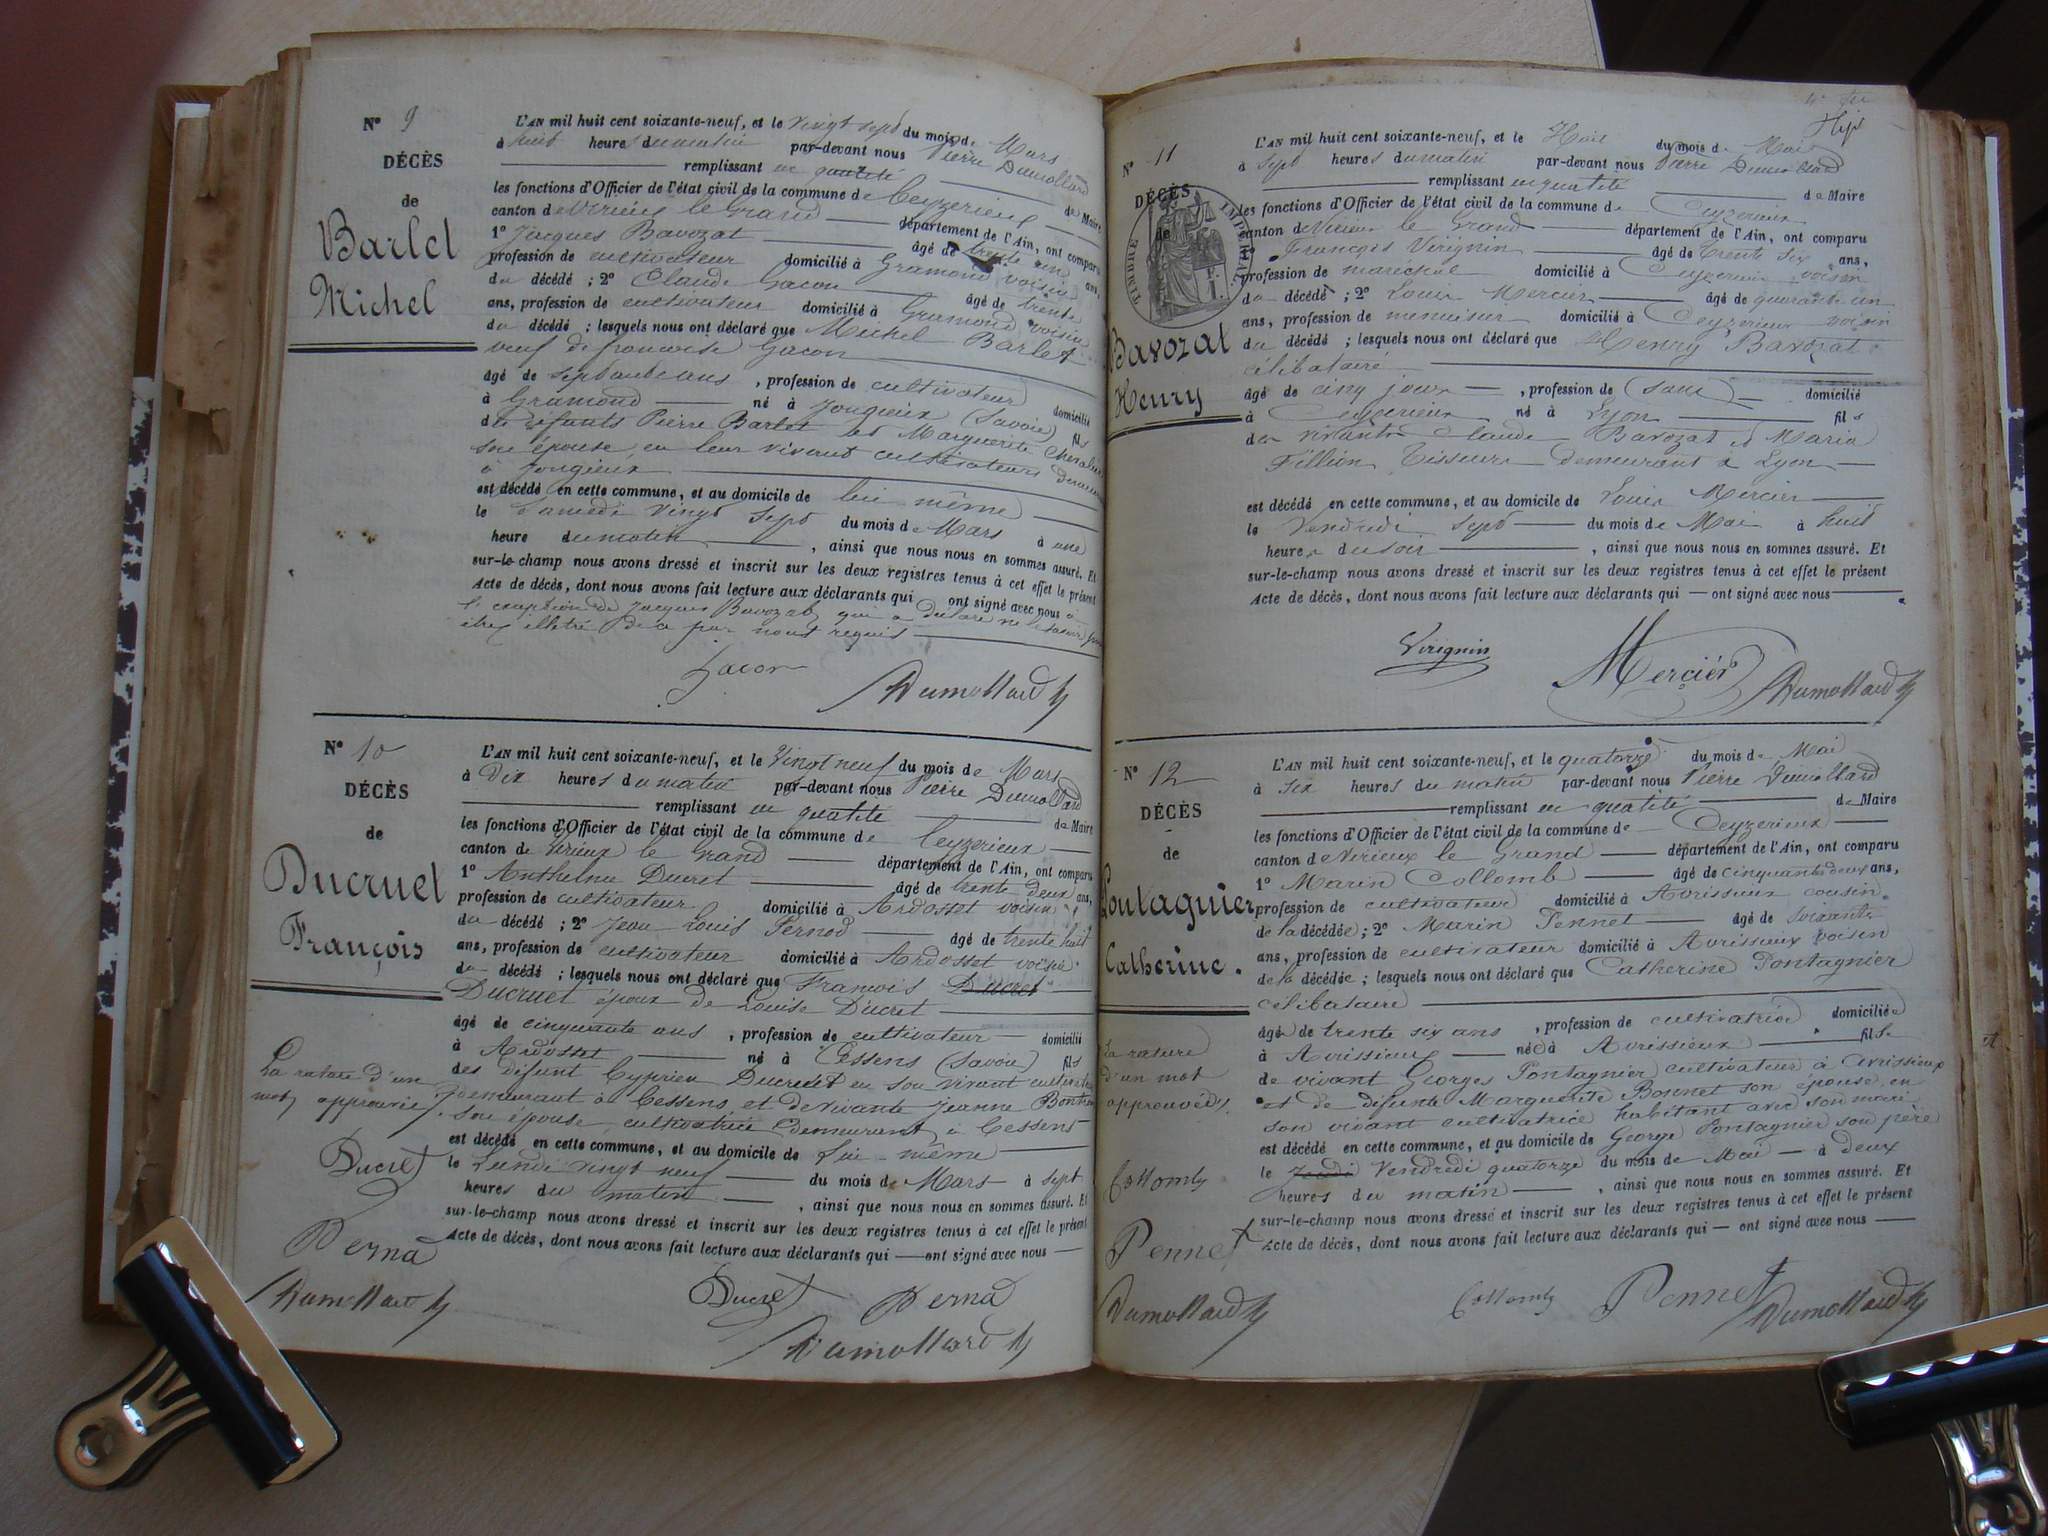 N° 9
DÉCÈS
de
Barlet
Michel
L'AN mil huit cent soixante-neuf, et le vingt sept du mois de Mars
à huit heures du matin par-devant nous Pierre Dumollard
remplissant en qualité de Maire
les fonctions d'Officier de l'état civil de la commune de Ceyzerieux
canton de Virieu le Grand département de l'Ain, ont comparu
1° Jacques Bavozat âgé de trente un ans,
profession de cultivateur domicilié à Gramond voisin
du décédé ; 2° Claude Gacon âgé de trente
ans, profession de cultivateur domicilié à Gramond voisin
du décédé ; lesquels nous ont déclaré que Michel Barlet
veuf de françoise Gacon
âgé de septante ans , profession de cultivateur domicilié
à Gramond né à Jongieux (Savoie) fils
des défunts Pierre Barlet et Marguerite Chevalier
son épouse, en leur vivant cultivateurs
à Jongieux
est décédé en cette commune, et au domicile de lui même
le Samedi vingt sept du mois de Mars à une
heure du matin , ainsi que nous nous en sommes assuré. Et
sur-le-champ nous avons dressé et inscrit sur les deux registres tenus à cet effet le présent
Acte de décès, dont nous avons fait lecture aux déclarants qui ont signé avec nous à
l'exception de Jacques Bavozat qui a déclaré ne le savoir pour
être illetré de ce par nous requis
Gacon Dumollard
N° 10
DÉCÈS
de
Ducruet
François
L'AN mil huit cent soixante-neuf, et le Vingt neuf du mois de Mars
à Dix heures du matin par-devant nous Pierre Dumollard
remplissant en qualité de Maire
les fonctions d'Officier de l'état civil de la commune de Ceyzerieux
canton de Virieux le Grand département de l'Ain, ont comparu
1° Anthelme Ducret âgé de trente deux ans,
profession de cultivateur domicilié à Ardosset voisin
du décédé ; 2° Jean Louis Pernod âgé de trente huit
ans, profession de cultivateur domicilié à Ardosset voisin
du décédé ; lesquels nous ont déclaré que François Ducret
Ducruet époux de Louise Ducret
âgé de cinquante ans , profession de cultivateur domicilié
à Ardosset né à Cessens (Savoie) fils
des défunt Cyprien Ducruet en son vivant
demeurant à Cessens et de vivante Jeanne
son épouse, cultivatrice demeurant à Cessens
est décédé en cette commune, et au domicile de Lui-même
le Lundi vingt neuf du mois de Mars à sept
heures du matin , ainsi que nous nous en sommes assuré. Et
sur-le-champ nous avons dressé et inscrit sur les deux registres tenus à cet effet le présent
Acte de décès, dont nous avons fait lecture aux déclarants qui — ont signé avec nous —
La rature d'un
mot approuvée
Ducret
Perna
Dumollard
Ducret Perna
Dumollard
N° 11
DÉCÈS
de
TIMBRE IMPÉRIAL
Bavozat
Henry
L'AN mil huit cent soixante-neuf, et le Huit du mois de Mai
à sept heures du matin par-devant nous Pierre Dumollard
remplissant en qualité de Maire
les fonctions d'Officier de l'état civil de la commune de Ceyzerieux
canton de Virieu le Grand département de l'Ain, ont comparu
François Virignin âgé de trente six ans,
profession de maréchal domicilié à Ceyzerieux voisin
du décédé ; 2° Louis Mercier âgé de quarante un
ans, profession de menuisier domicilié à Ceyzerieux voisin
du décédé ; lesquels nous ont déclaré que Henry Bavozat
célibataire
âgé de cinq jours , profession de (sans) domicilié
à Ceyzerieux né à Lyon fils
des vivants Claude Bavozat et Maria
Fillion Tisseurs demeurant à Lyon
est décédé en cette commune, et au domicile de Louis Mercier
le Vendredi sept du mois de Mai à huit
heures du soir , ainsi que nous nous en sommes assuré. Et
sur-le-champ nous avons dressé et inscrit sur les deux registres tenus à cet effet le présent
Acte de décès, dont nous avons fait lecture aux déclarants qui — ont signé avec nous
Virignin Mercier Dumollard
N° 12
DÉCÈS
de
Pontagnier
Catherine.
L'AN mil huit cent soixante-neuf, et le quatorze du mois de Mai
à six heures du matin par-devant nous Pierre Dumollard
remplissant en qualité de Maire
les fonctions d'Officier de l'état civil de la commune de Ceyzerieux
canton de Virieux le Grand département de l'Ain, ont comparu
1° Marin Collomb âgé de cinquante deux ans,
profession de cultivateur domicilié à Avrissieux cousin
de la décédée ; 2° Marin Pennet âgé de soixante
ans, profession de cultivateur domicilié à Avrissieux voisin
de la décédée ; lesquels nous ont déclaré que Catherine Pontagnier
célibataire
âgée de trente six ans , profession de cultivatrice domiciliée
à Avrissieux née à Avrissieux fille
de vivant Georges Pontagnier cultivateur à Avrissieux
et de défunte Marguerite Bonnet son épouse, en
son vivant cultivatrice habitant avec son mari
est décédé en cette commune, et au domicile de George Pontagnier son père
le Jeudi Vendredi quatorze du mois de Mai — à deux
heures du matin , ainsi que nous nous en sommes assuré. Et
sur-le-champ nous avons dressé et inscrit sur les deux registres tenus à cet effet le présent
Acte de décès, dont nous avons fait lecture aux déclarants qui — ont signé avec nous —
La rature
d'un mot
approuvée
Collomb
Pennet
Dumollard
Collomb Pennet Dumollard